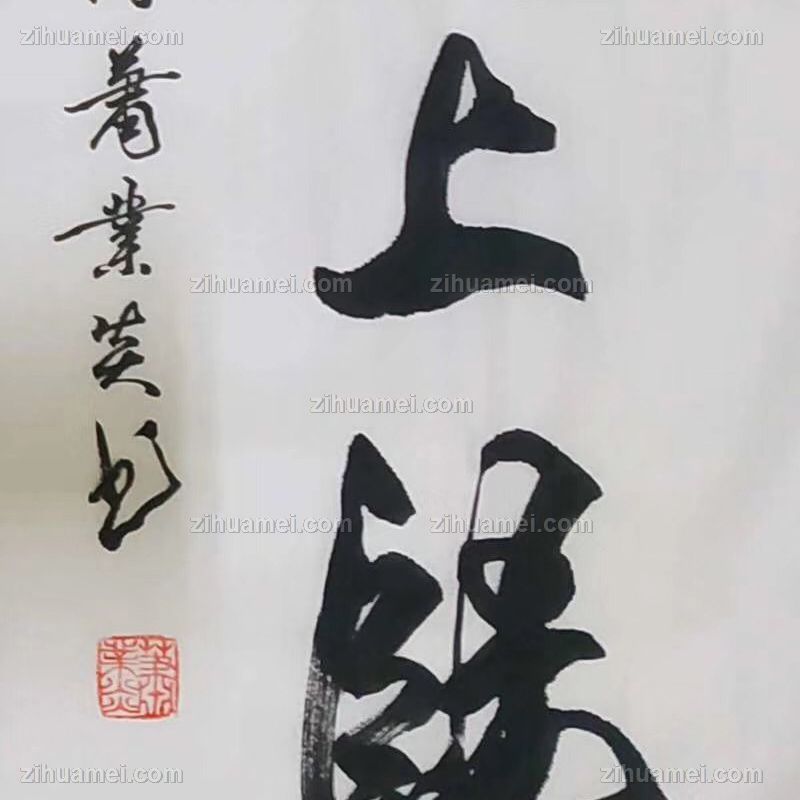 上歸
蕭業炎书
蕭業炎
zihuamei.com
zihuamei.com
zihuamei.com
zihuamei.com
zihuamei.com
zihuamei.com
zihuamei.com
zihuamei.com
zihuamei.com